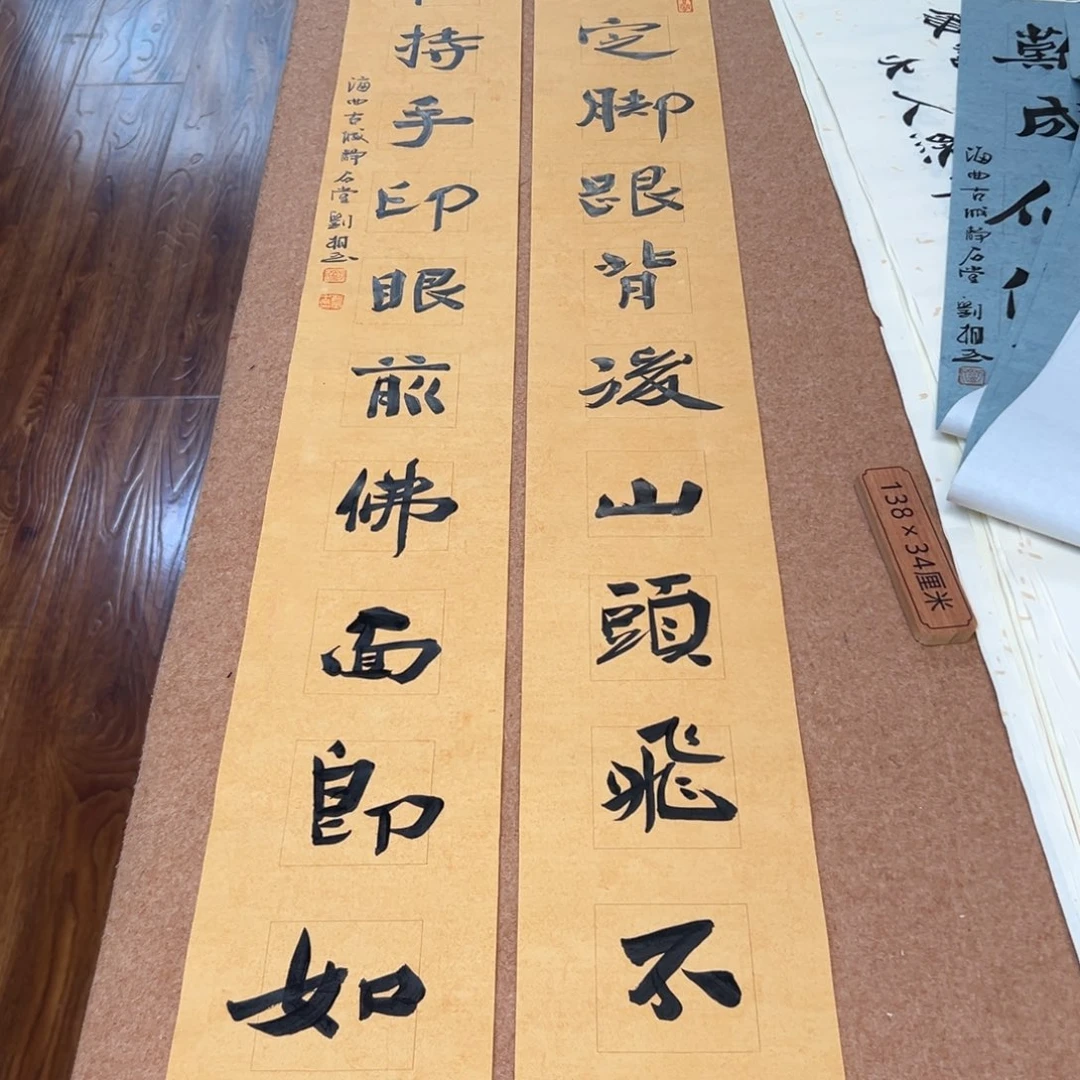 定脚跟背後山頭飛不
持手印眼前佛面即如
海曲古城静石堂劉相玉
138×34厘米
人
黨成
海曲古城静石堂劉相玉